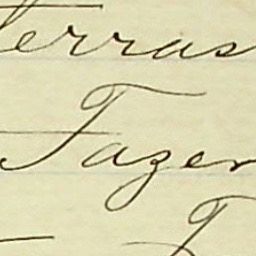 terras
Fazen
F